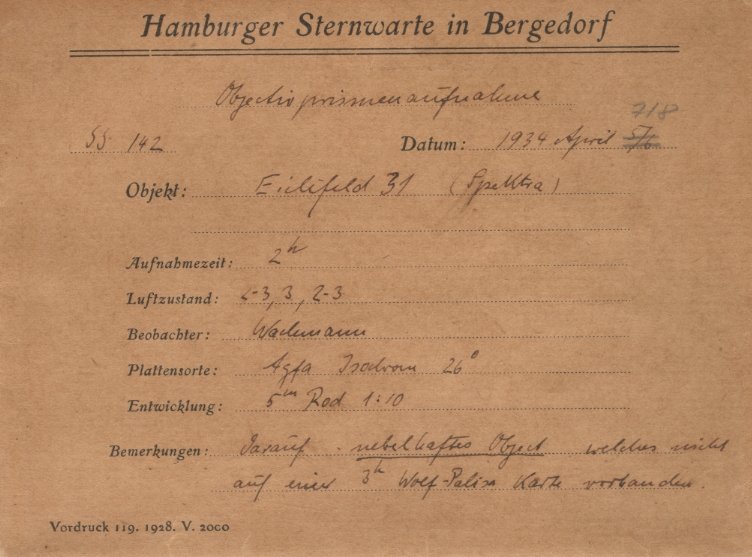 Hamburger Sternwarte in Bergedorf
Objectivprismenaufnahme
718
SS 142 Datum: 1934 April 5/6
Objekt: Eichfeld 31 (Spektra)
Aufnahmezeit: 2h
Luftzustand: 2-3, 3, 2-3
Beobachter: Wachmann
Plattensorte: Agfa Isochrom 26°
Entwicklung: 5m Rod 1:10
Bemerkungen: Darauf nebelhaftes Object welches nicht
auf einer 3h Wolf-Palisa Karte vorhanden.
Vordruck 119. 1928. V. 2000